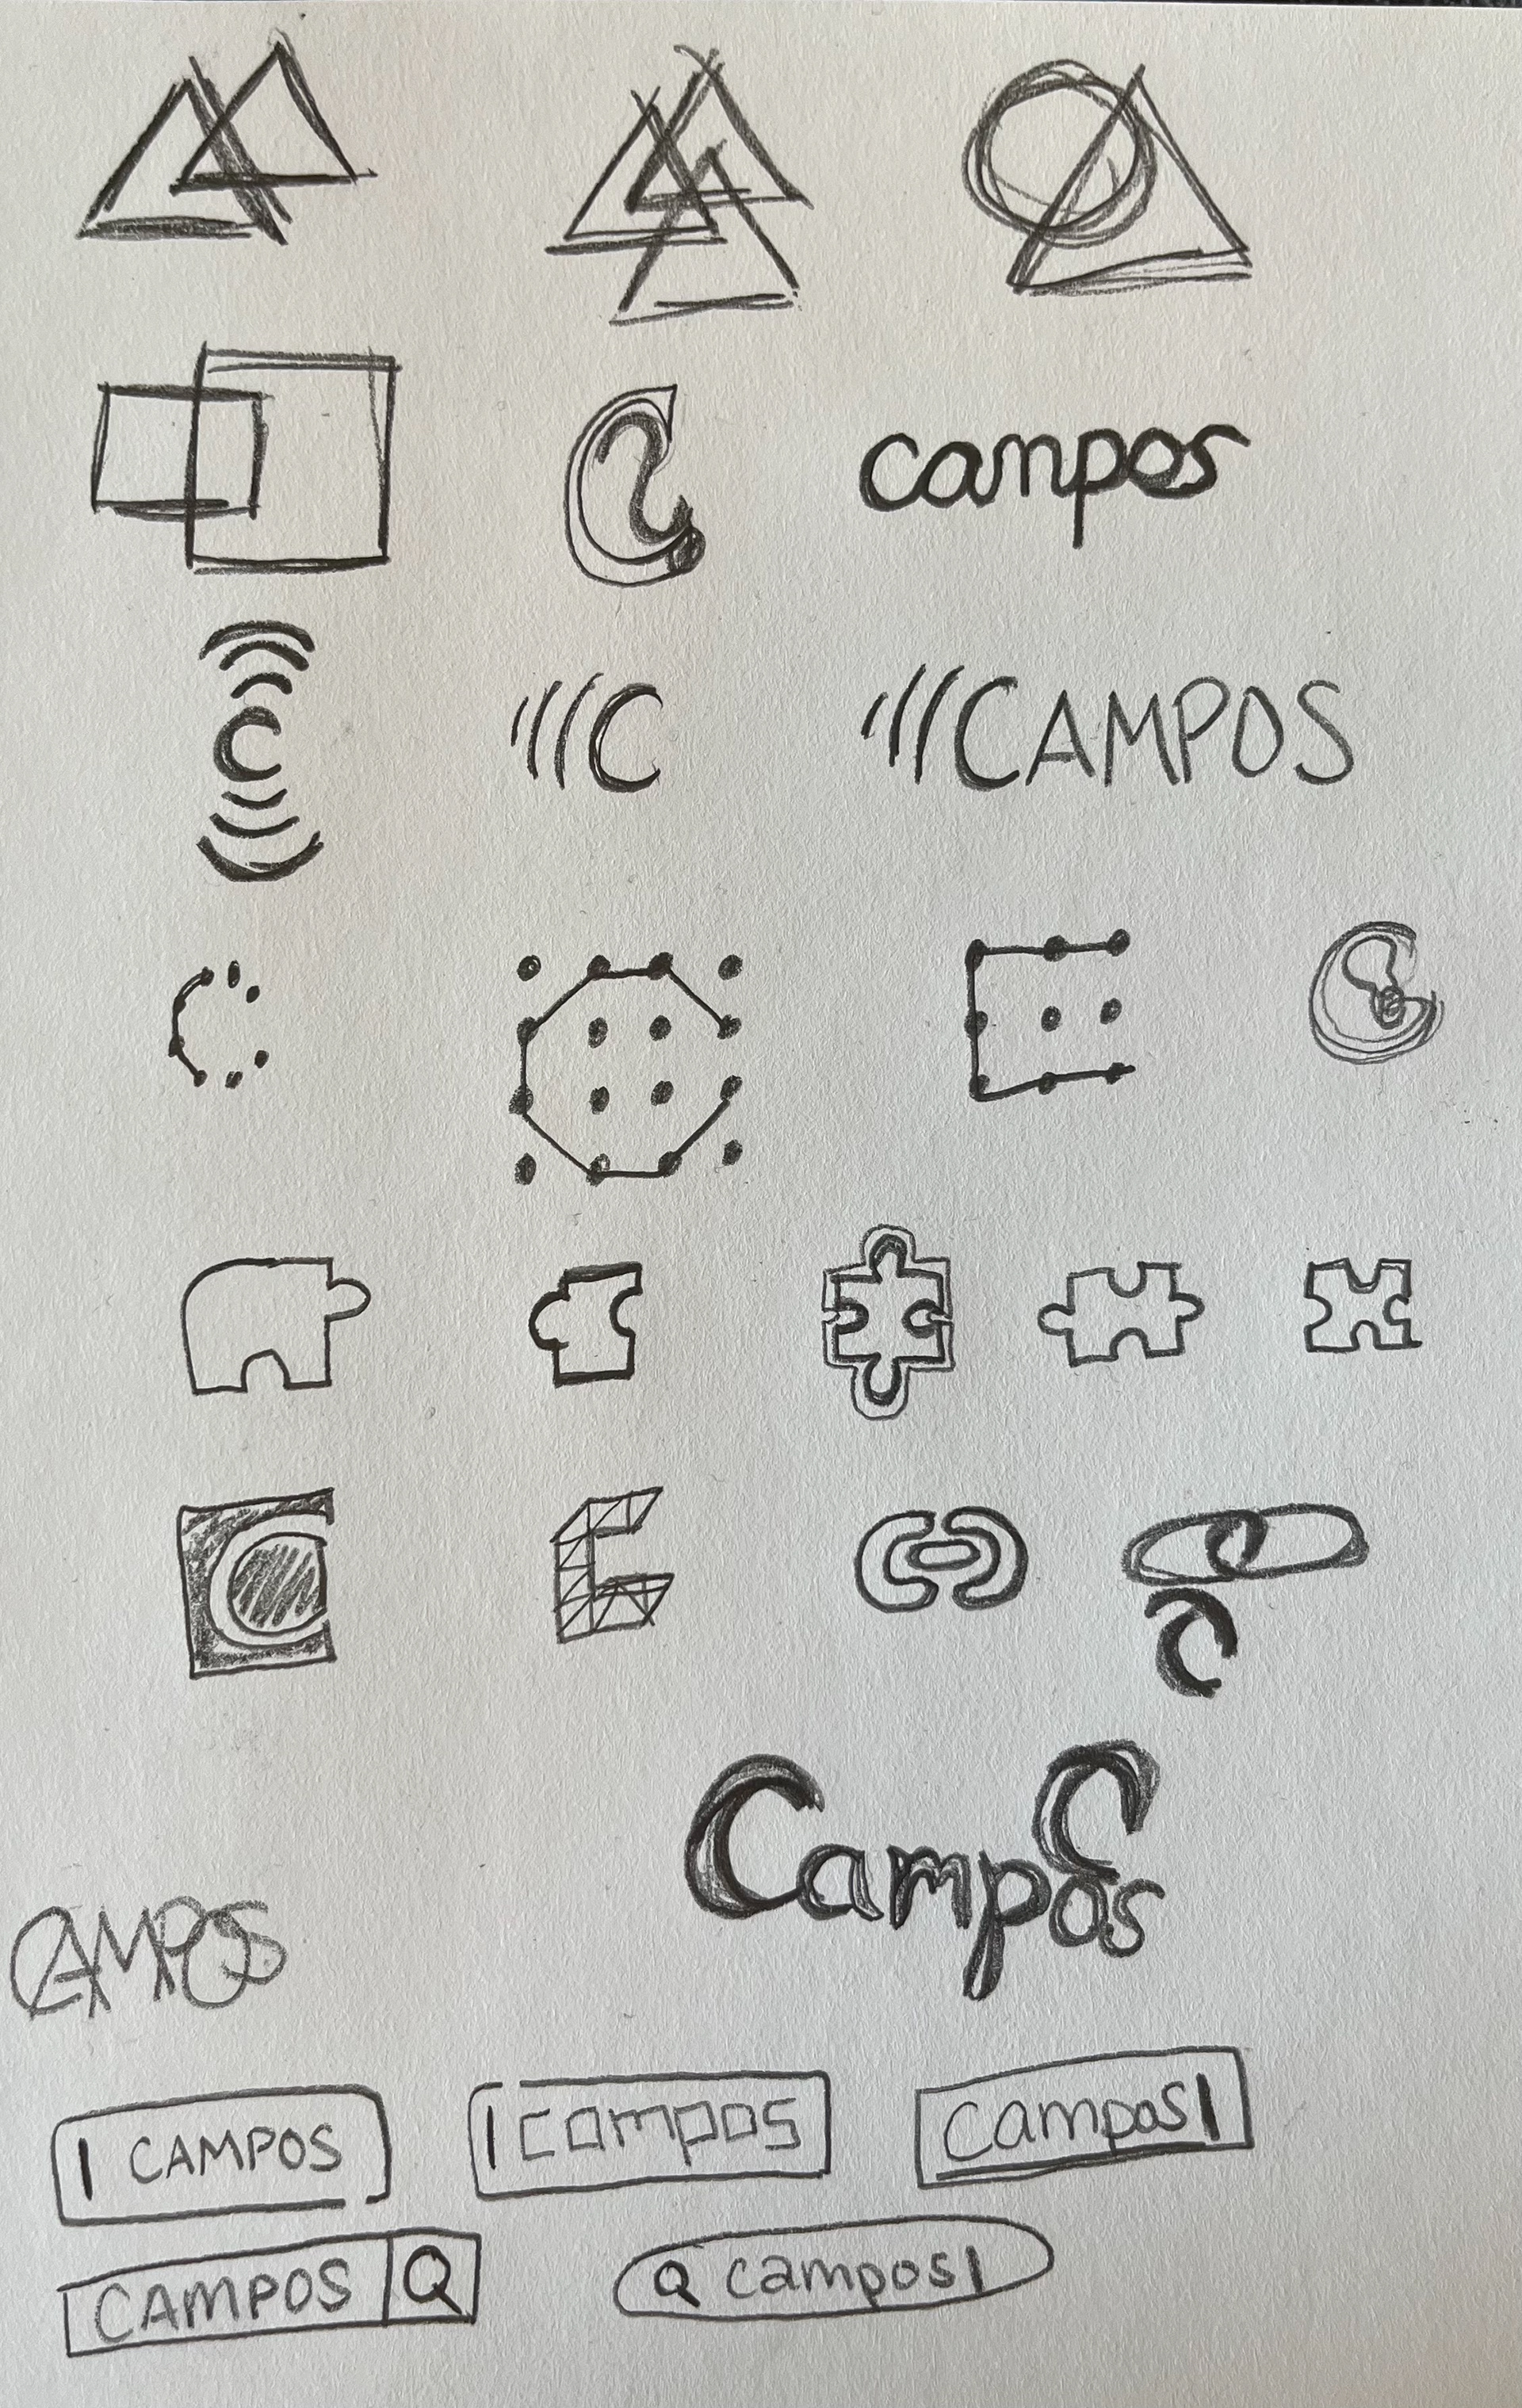 campos
C
C
CAMPOS
C
Campos
CAMPOS
CAMPOS
campos
campos
CAMPOS
campos